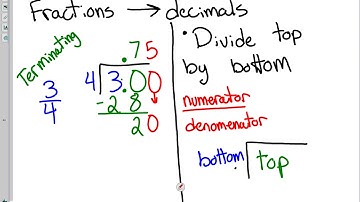 Fractions → decimals
Terminating
3/4
.75
4 3.00
-28
20
• Divide top
by bottom
numerator
denomenator
bottom top